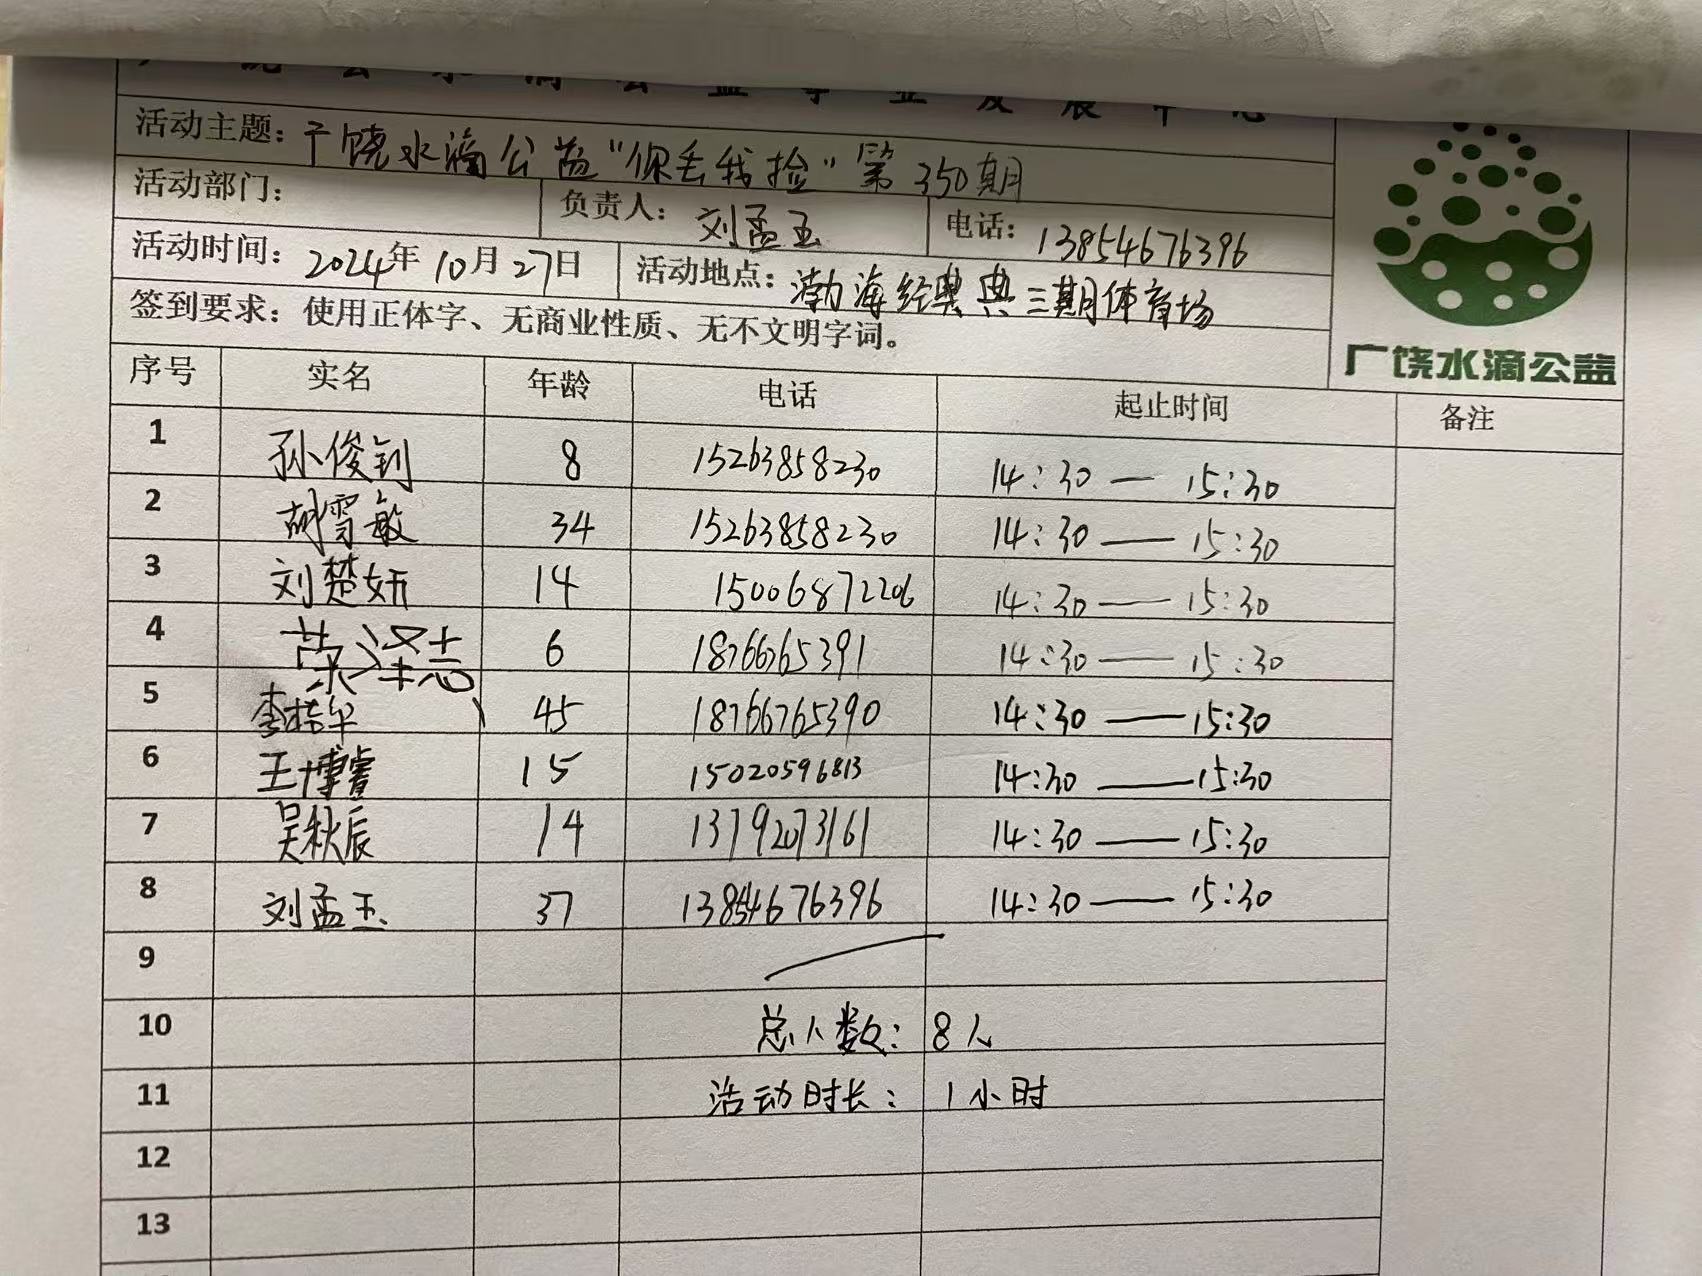 广饶县水滴公益事业发展中心
活动主题：广饶水滴公益"你丢我捡"第350期
活动部门： 负责人：刘孟玉 电话：13854676396
活动时间：2024年10月27日 活动地点：渤海经典典三期体育场
签到要求：使用正体字、无商业性质、无不文明字词。
广饶水滴公益
序号 实名 年龄 电话 起止时间 备注
1 孙俊钊 8 15263858230 14:30—15:30
2 胡雪敏 34 15263858230 14:30—15:30
3 刘楚妍 14 15006872206 14:30—15:30
4 荣泽志 6 18766765391 14:30—15:30
5 李桂华 45 18766765390 14:30—15:30
6 王博睿 15 15020596813 14:30—15:30
7 吴秋辰 14 13792073161 14:30—15:30
8 刘孟玉 37 13854676396 14:30—15:30
9
10 总人数：8人
11 活动时长：1小时
12
13